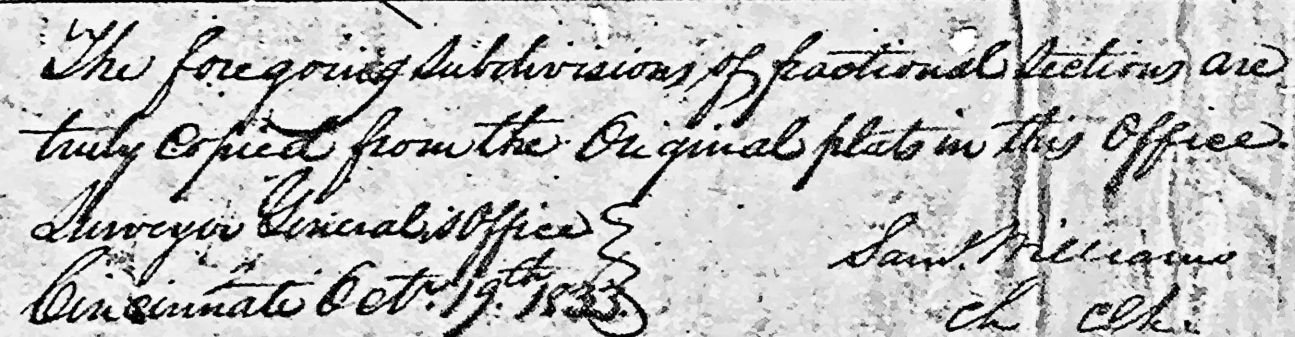 The foregoing subdivisions of fractional Sections are
truly copied from the Original plats in this Office.
Surveyor General's Office
Cincinnati Octr. 19th. 1833.
Saml. Williams
Ch Clk.